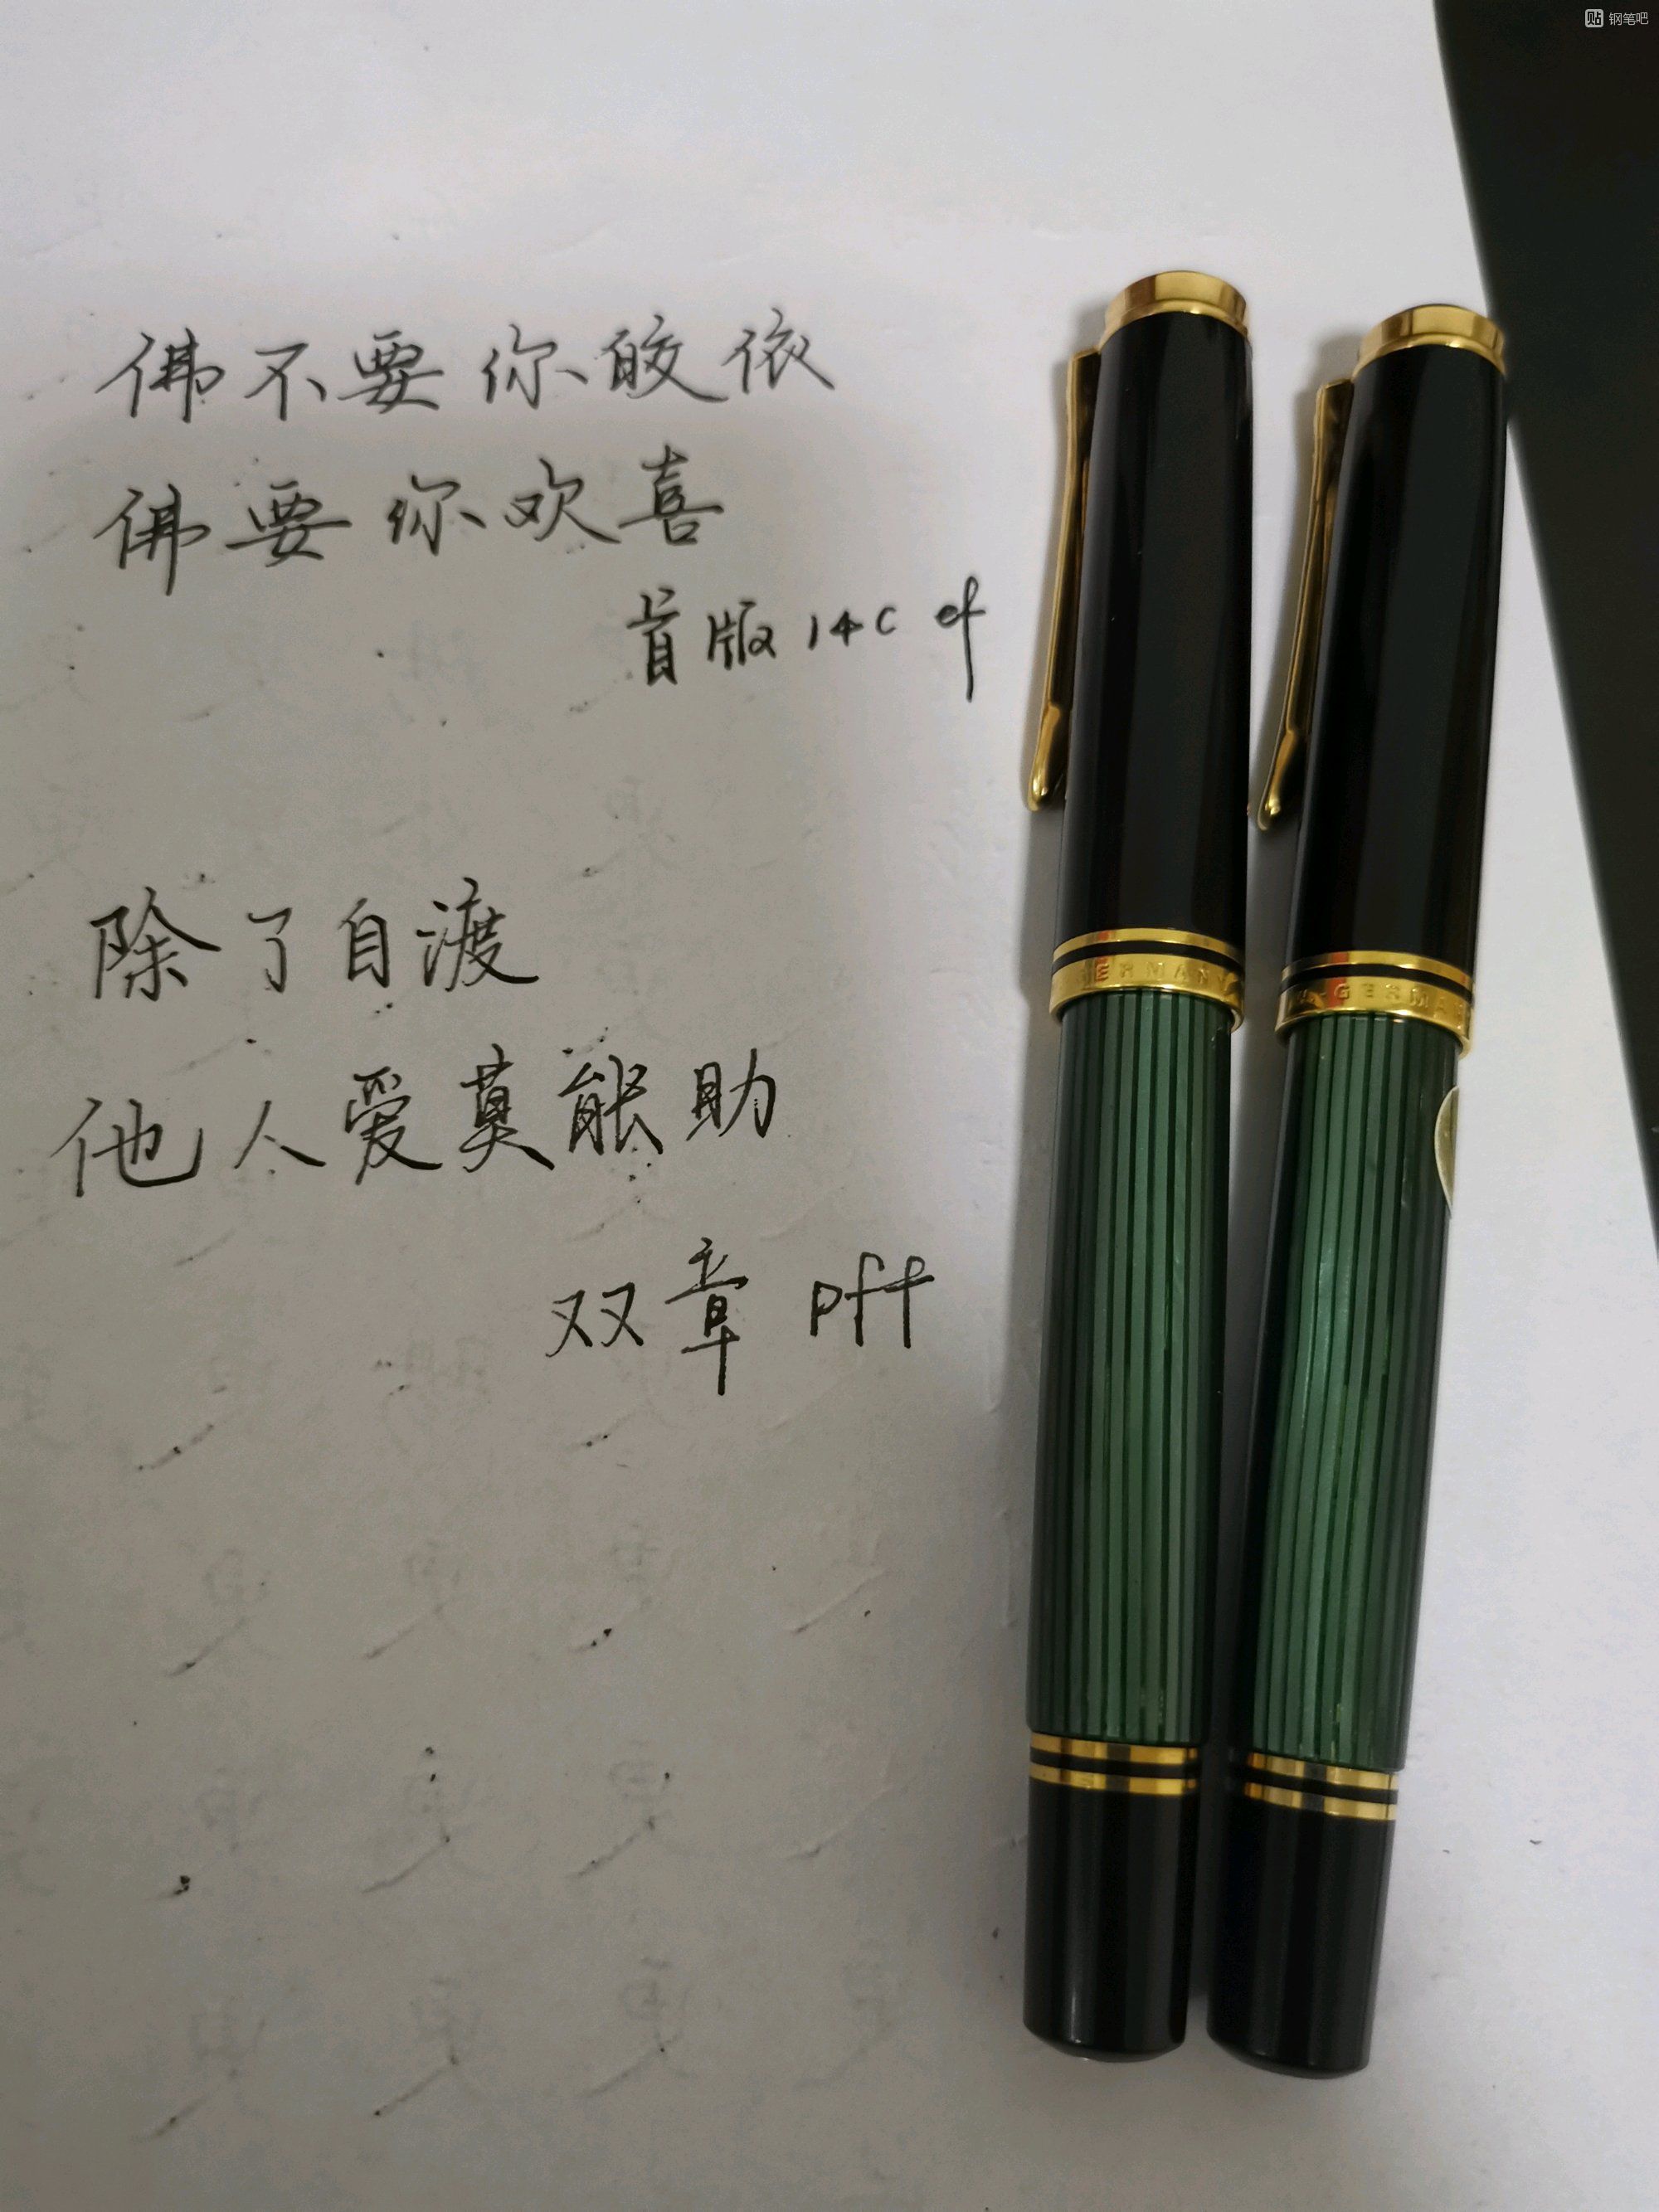 钢笔吧
佛不要你皎依
佛要你欢喜
首版 14C ef
除了自渡
他人爱莫能助
双章 pff
GERMANY
GERMA